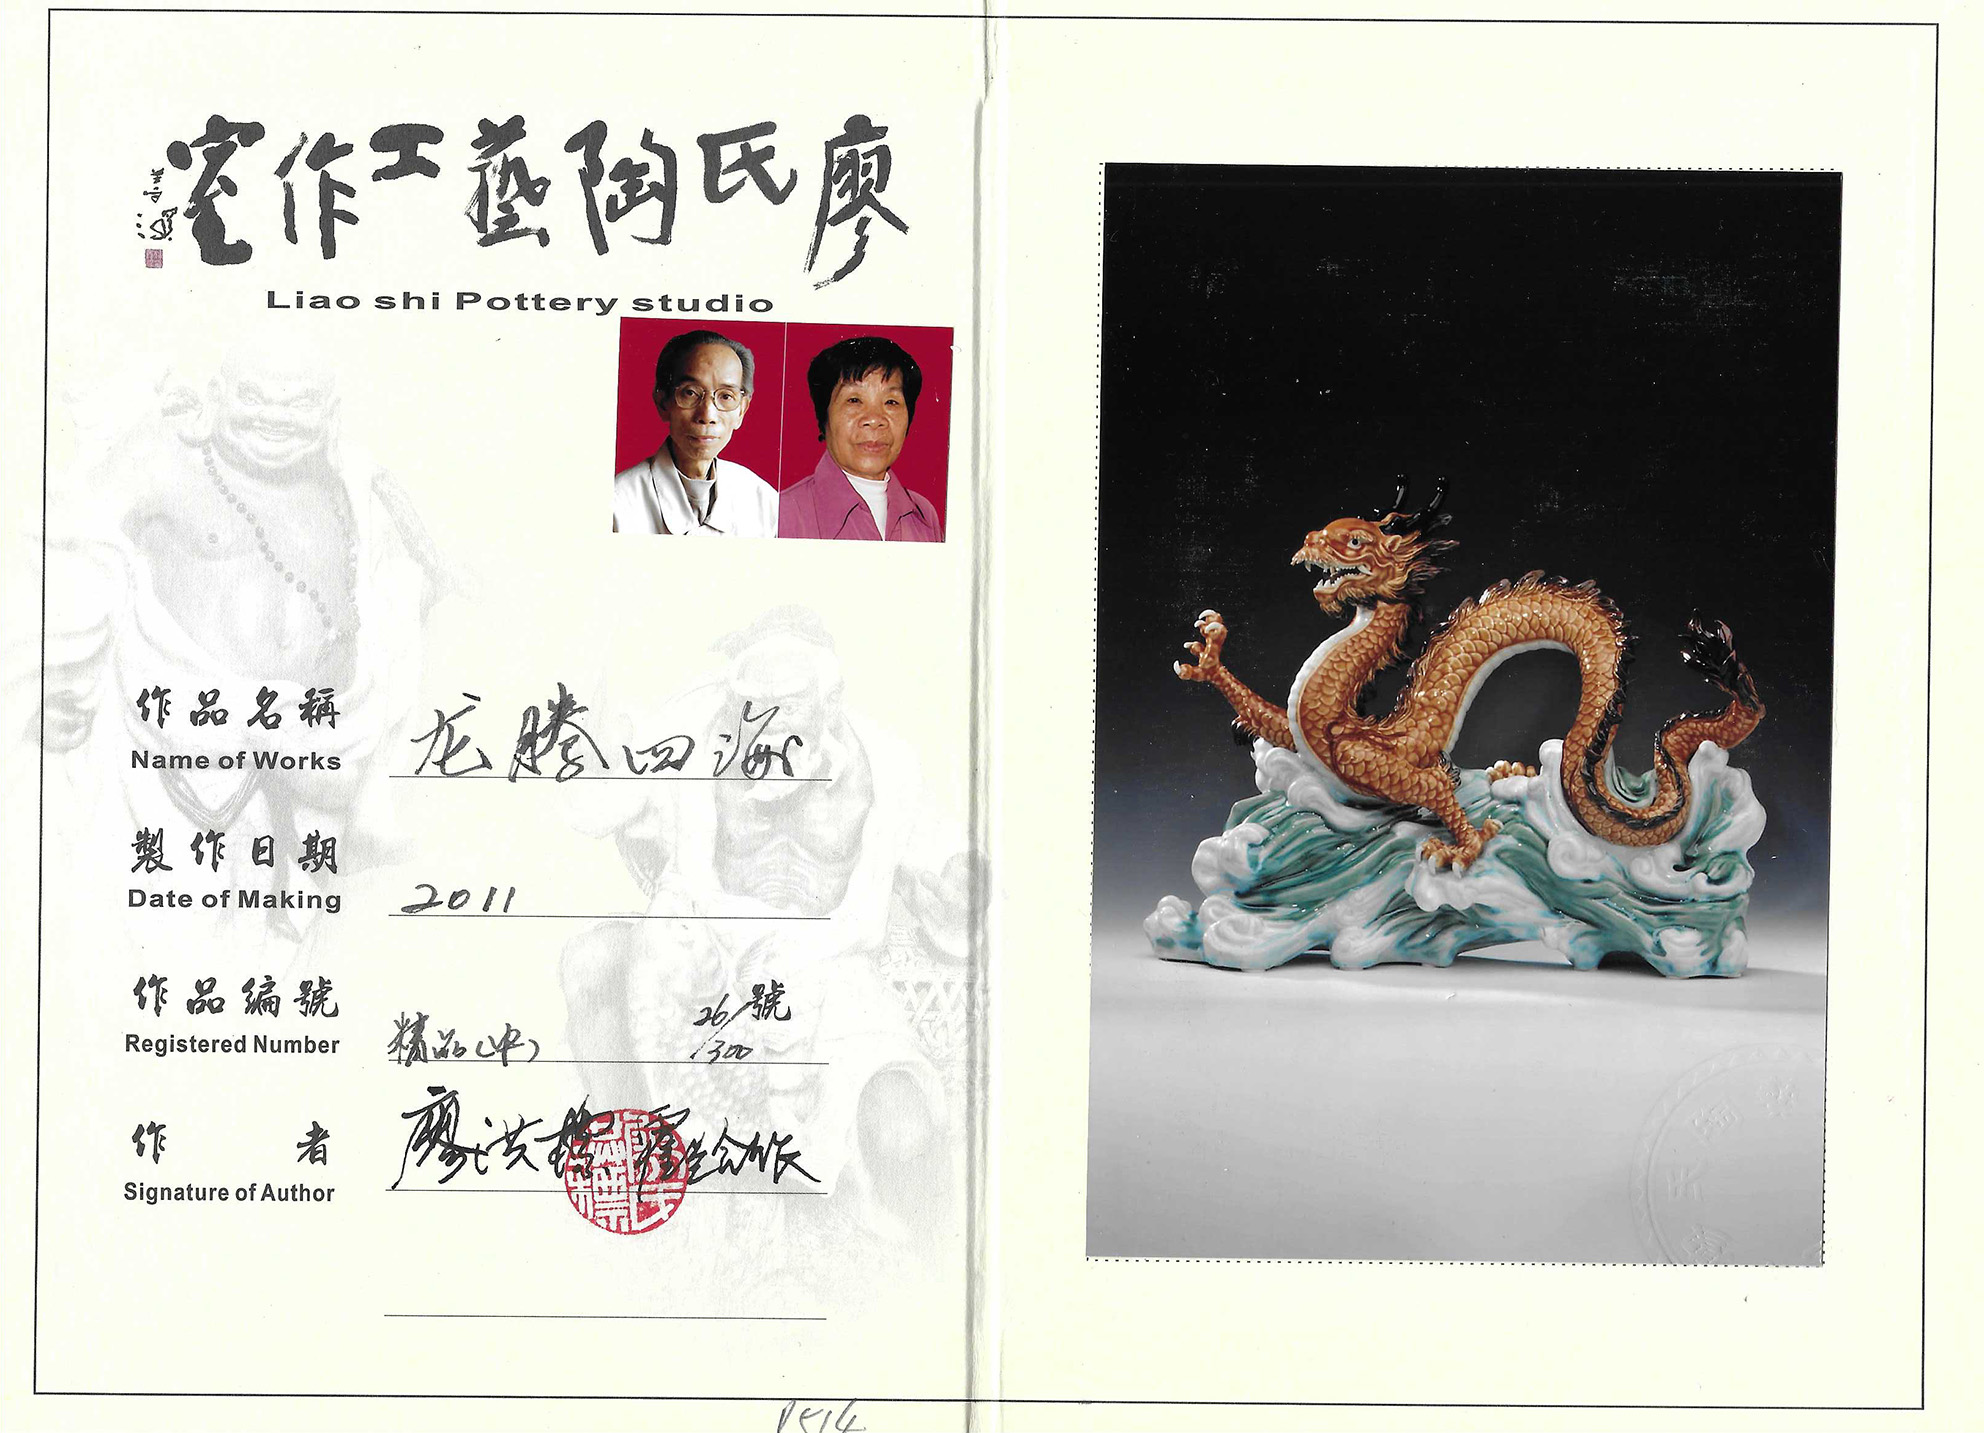 廖氏陶藝工作室
Liao shi Pottery studio
作品名稱
Name of Works
龙腾四海
製作日期
Date of Making
2011
作品編號
Registered Number
精品(中) 26/300 號
作者
Signature of Author
廖洪标 合作